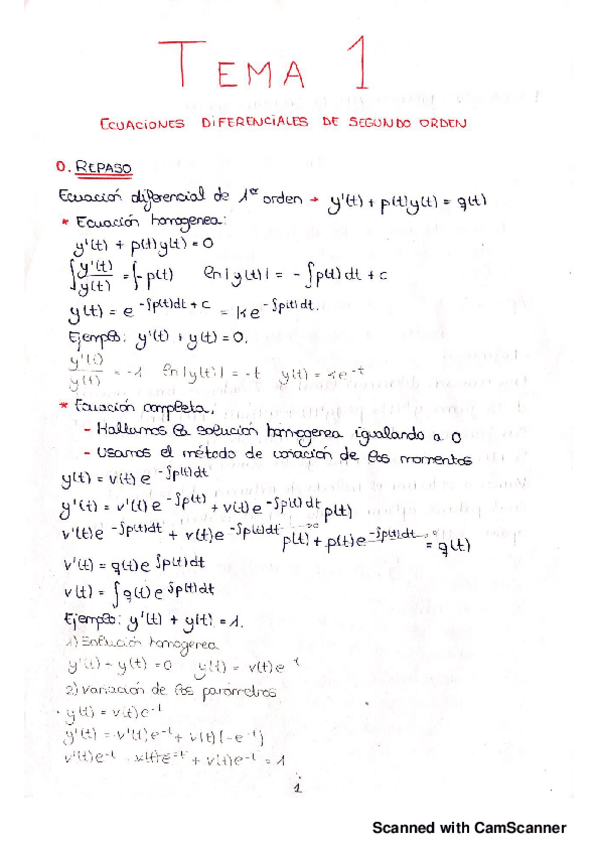 TEMA 1
ECUACIONES DIFERENCIALES DE SEGUNDO ORDEN
0. REPASO
Ecuación diferencial de 1er orden → y'(t) + p(t)y(t) = g(t)
* Ecuación homogenea:
y'(t) + p(t)y(t) = 0
∫ y'(t)/y(t) = ∫-p(t)   ln|y(t)| = -∫p(t)dt + c
y(t) = e^(-∫p(t)dt + c) = ke^(-∫p(t)dt).
Ejemplo: y'(t) + y(t) = 0.
y'(t)/y(t) = -1   ln|y(t)| = -t   y(t) = ke^(-t)
* Ecuación completa.
- Hallamos la solución homogenea igualando a 0
- Usamos el método de variación de los momentos
y(t) = v(t) e^(-∫p(t)dt)
y'(t) = v'(t)e^(-∫p(t)) + v(t)e^(-∫p(t)dt) p(t)
v'(t)e^(-∫p(t)dt) + v(t)e^(-∫p(t)dt) p(t) + p(t)e^(-∫p(t)dt) = g(t)
v'(t) = g(t)e^(∫p(t)dt)
v(t) = ∫g(t)e^(∫p(t)dt)
Ejemplo: y'(t) + y(t) = 1.
1) Solución homogenea
y'(t) - y(t) = 0   y(t) = v(t)e^(-t)
2) Variación de los parámetros
y(t) = v(t)e^(-t)
y'(t) = v'(t)e^(-t) + v(t)(-e^(-t))
v'(t)e^(-t) - v(t)e^(-t) + v(t)e^(-t) = 1
1
Scanned with CamScanner